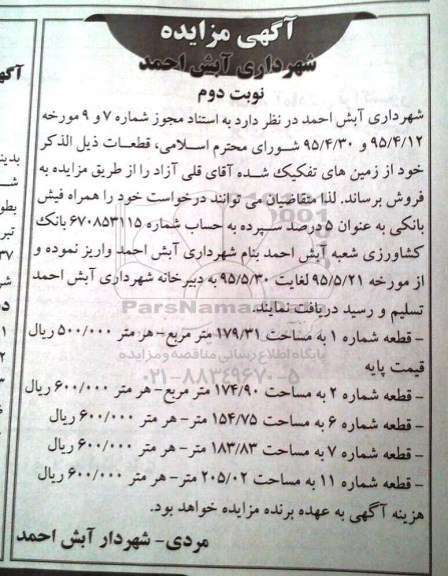 آگهی مزایده
شهرداری آبش احمد
نوبت دوم
شهرداری آبش احمد در نظر دارد به استناد مجوز شماره ۷ و ۹ مورخه
۹۵/۴/۱۲ و ۹۵/۴/۳۰ شورای محترم اسلامی، قطعات ذیل الذکر
خود از زمین های تفکیک شده آقای قلی آزاد را از طریق مزایده به
فروش برساند. لذا متقاضیان می توانند درخواست خود را همراه فیش
بانکی به عنوان ۵ درصد سپرده به حساب شماره ۶۷۰۸۵۳۱۱۵ بانک
کشاورزی شعبه آبش احمد بنام شهرداری آبش احمد واریز نموده و
از مورخه ۹۵/۵/۲۱ لغایت ۹۵/۵/۳۰ به دبیرخانه شهرداری آبش احمد
تسلیم و رسید دریافت نمایند.
- قطعه شماره ۱ به مساحت ۱۷۹/۳۱ متر مربع- هر متر ۵۰۰/۰۰۰ ریال
قیمت پایه
- قطعه شماره ۲ به مساحت ۱۷۴/۹۰ متر مربع- هر متر ۶۰۰/۰۰۰ ریال
- قطعه شماره ۶ به مساحت ۱۵۴/۷۵ متر- هر متر ۶۰۰/۰۰۰ ریال
- قطعه شماره ۷ به مساحت ۱۸۳/۸۳ متر- هر متر ۶۰۰/۰۰۰ ریال
- قطعه شماره ۱۱ به مساحت ۲۰۵/۰۲ متر- هر متر ۶۰۰/۰۰۰ ریال
هزینه آگهی به عهده برنده مزایده خواهد بود.
مردی- شهردار آبش احمد
پایگاه اطلاع رسانی مناقصه و مزایده
۰۲۱-۸۸۳۴۹۶۷۰-۵